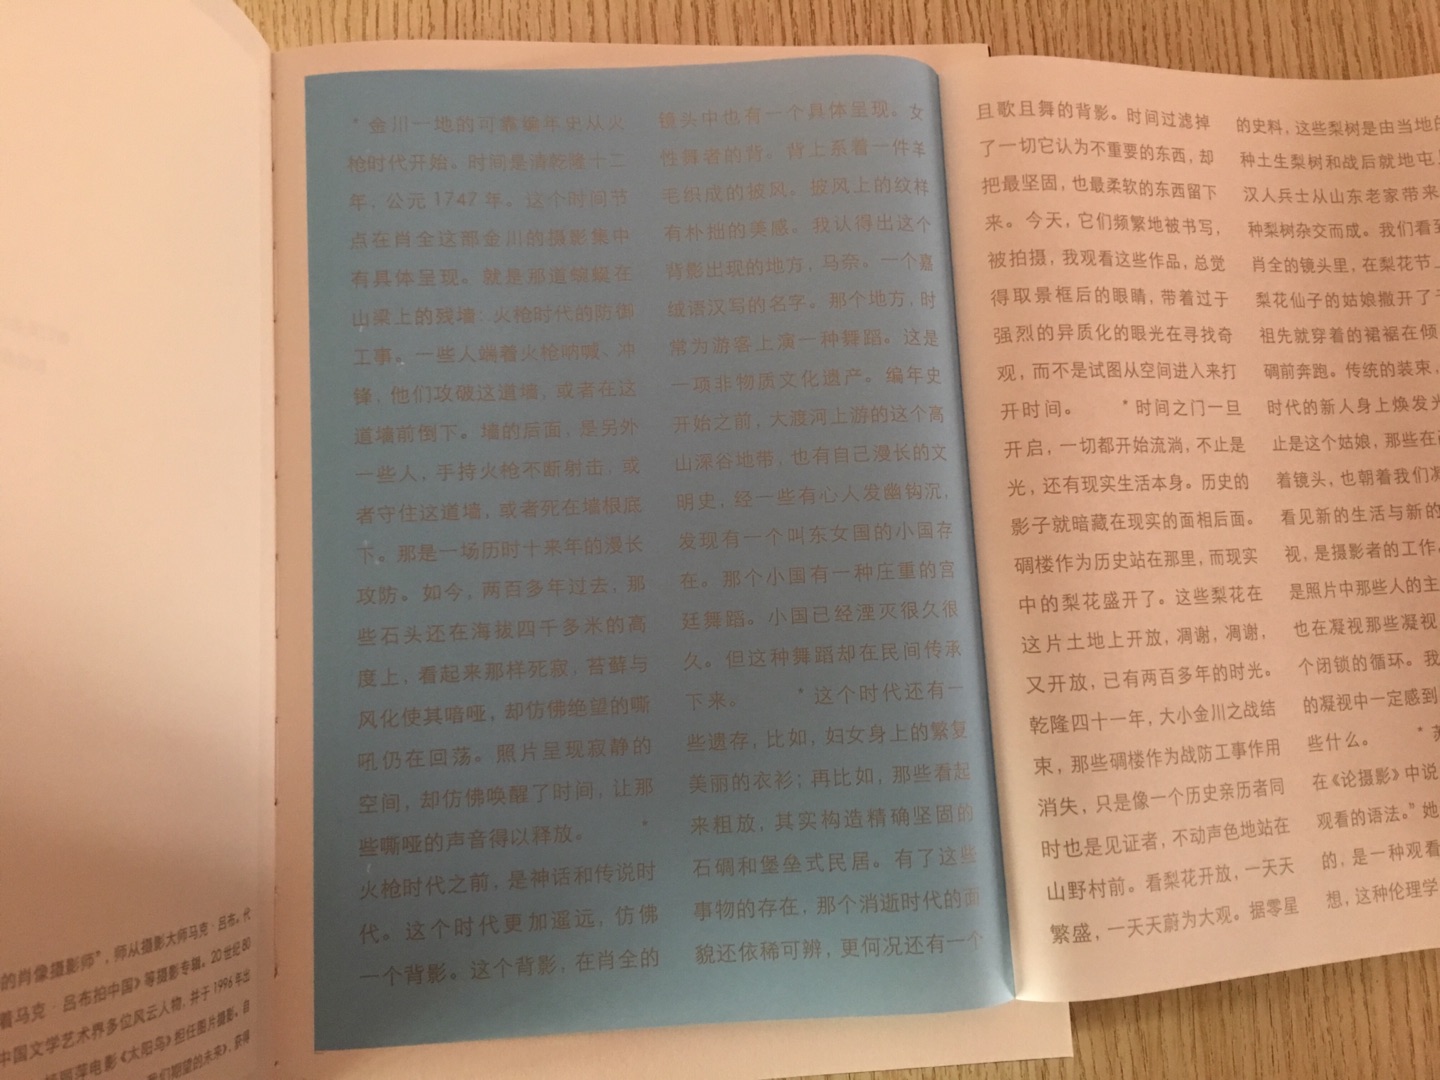 的肖像摄影师”，师从摄影大师马克·吕布。代
着马克·吕布拍中国》等摄影专辑。20世纪80
中国文学艺术界多位风云人物，并于1996年出
丽萍电影《太阳鸟》担任图片摄影。自
们期望的未来》，获得
*金川一地的可靠编年史从火
枪时代开始。时间是清乾隆十二
年，公元1747年。这个时间节
点在肖全这部金川的摄影集中
有具体呈现。就是那道蜿蜒在
山梁上的残墙：火枪时代的防御
工事。一些人端着火枪呐喊、冲
锋，他们攻破这道墙，或者在这
道墙前倒下。墙的后面，是另外
一些人，手持火枪不断射击，或
者守住这道墙，或者死在墙根底
下。那是一场历时十来年的漫长
攻防。如今，两百多年过去，那
些石头还在海拔四千多米的高
度上，看起来那样死寂，苔藓与
风化使其喑哑，却仿佛绝望的嘶
吼仍在回荡。照片呈现寂静的
空间，却仿佛唤醒了时间，让那
些嘶哑的声音得以释放。 *
火枪时代之前，是神话和传说时
代。这个时代更加遥远，仿佛
一个背影。这个背影，在肖全的
镜头中也有一个具体呈现。女
性舞者的背。背上系着一件羊
毛织成的披风。披风上的纹样
有朴拙的美感。我认得出这个
背影出现的地方，马奈。一个嘉
绒语汉写的名字。那个地方，时
常为游客上演一种舞蹈。这是
一项非物质文化遗产。编年史
开始之前，大渡河上游的这个高
山深谷地带，也有自己漫长的文
明史，经一些有心人发幽钩沉，
发现有一个叫东女国的小国存
在。那个小国有一种庄重的宫
廷舞蹈。小国已经湮灭很久很
久。但这种舞蹈却在民间传承
下来。 *这个时代还有一
些遗存，比如，妇女身上的繁复
美丽的衣衫；再比如，那些看起
来粗放，其实构造精确坚固的
石碉和堡垒式民居。有了这些
事物的存在，那个消逝时代的面
貌还依稀可辨，更何况还有一个
且歌且舞的背影。时间过滤掉
了一切它认为不重要的东西，却
把最坚固，也最柔软的东西留下
来。今天，它们频繁地被书写，
被拍摄，我观看这些作品，总觉
得取景框后的眼睛，带着过于
强烈的异质化的眼光在寻找奇
观，而不是试图从空间进入来打
开时间。 *时间之门一旦
开启，一切都开始流淌，不止是
光，还有现实生活本身。历史的
影子就暗藏在现实的面相后面。
碉楼作为历史站在那里，而现实
中的梨花盛开了。这些梨花在
这片土地上开放，凋谢，凋谢，
又开放，已有两百多年的时光。
乾隆四十一年，大小金川之战结
束，那些碉楼作为战防工事作用
消失，只是像一个历史亲历者同
时也是见证者，不动声色地站在
山野村前。看梨花开放，一天天
繁盛，一天天蔚为大观。据零星
的史料，这些梨树是由当地的
种土生梨树和战后就地屯
汉人兵士从山东老家带来
种梨树杂交而成。我们看到
肖全的镜头里，在梨花节上
梨花仙子的姑娘撒开了
祖先就穿着的裙裾在倾
碉前奔跑。传统的装束，
时代的新人身上焕发光
止是这个姑娘，那些在
着镜头，也朝着我们凝
看见新的生活与新的
视，是摄影者的工作。
是照片中那些人的主
也在凝视那些凝视
个闭锁的循环。我
的凝视中一定感到
些什么。 *苏
在《论摄影》中说
观看的语法。”她
的，是一种观看
想，这种伦理学